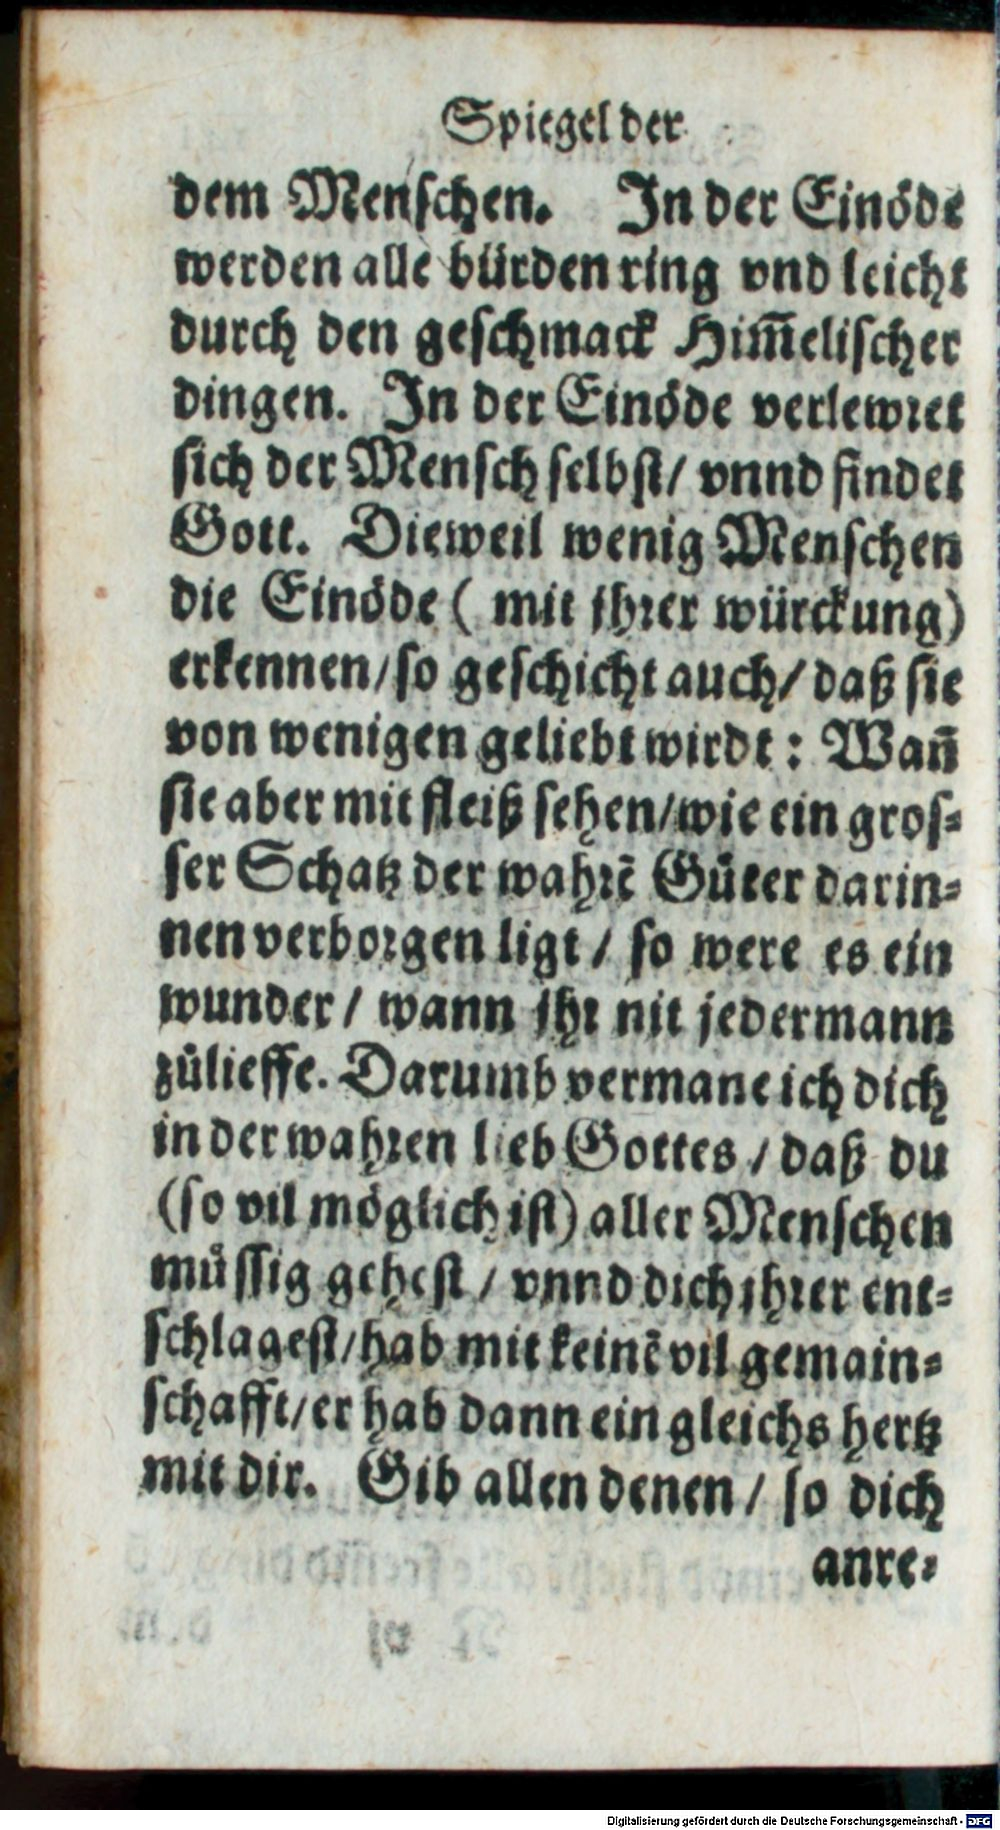 Spiegel der
dem Menschen. In der Einöde
werden alle bürden ring vnd leicht
durch den geschmack Him̅elischer
dingen. In der Einöde verlewret
sich der Mensch selbst/ vnnd findet
Gott. Dieweil wenig Menschen
die Einöde ( mit jhrer würckung)
erkennen/ so geschicht auch/ daß sie
von wenigen geliebt wirdt : Wan̅
sie aber mit fleiß sehen/ wie ein gros-
ser Schatz der wahrẽ Gůter darin-
nen verborgen ligt / so were es ein
wunder / wann jhr nit jedermann
zůlieffe. Darumb vermane ich dich
in der wahren lieb Gottes / daß du
(so vil möglich ist) aller Menschen
můssig gehest / vnnd dich jhrer ent-
schlagest/ hab mit keinẽ vil gemain-
schafft/ er hab dann ein gleichs hertz
mit dir. Gib allen denen / so dich
anre-
Digitalisierung gefördert durch die Deutsche Forschungsgemeinschaft - DFG